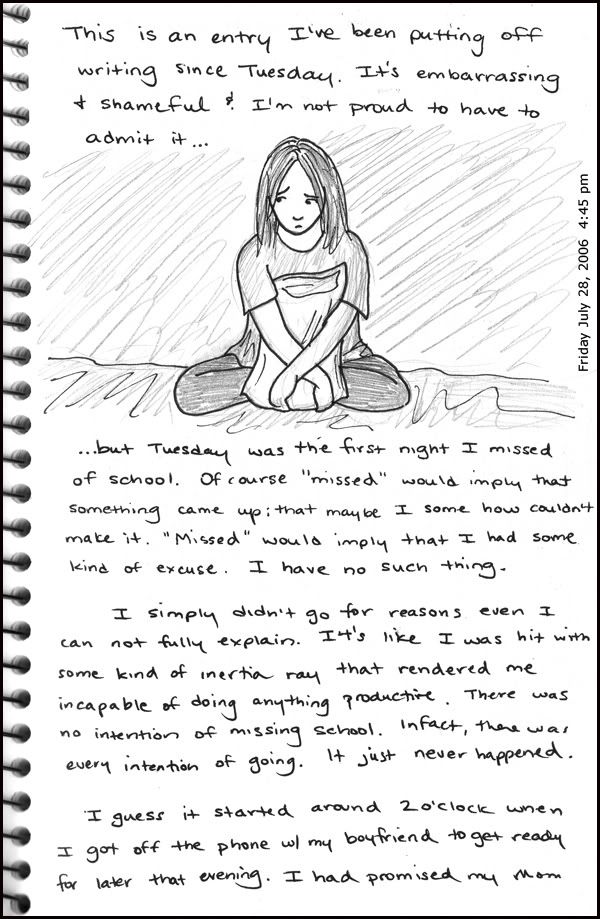 This is an entry I've been putting off
writing since Tuesday. It's embarrassing
& shameful & I'm not proud to have to
admit it...
Friday July 28, 2006 4:45 pm
...but Tuesday was the first night I missed
of school. Of course "missed" would imply that
something came up; that maybe I some how couldn't
make it. "Missed" would imply that I had some
kind of excuse. I have no such thing.
I simply didn't go for reasons even I
can not fully explain. It's like I was hit with
some kind of inertia ray that rendered me
incapable of doing anything productive. There was
no intention of missing school. Infact, there was
every intention of going. It just never happened.
I guess it started around 2 o'clock when
I got off the phone w/ my boyfriend to get ready
for later that evening. I had promised my Mom